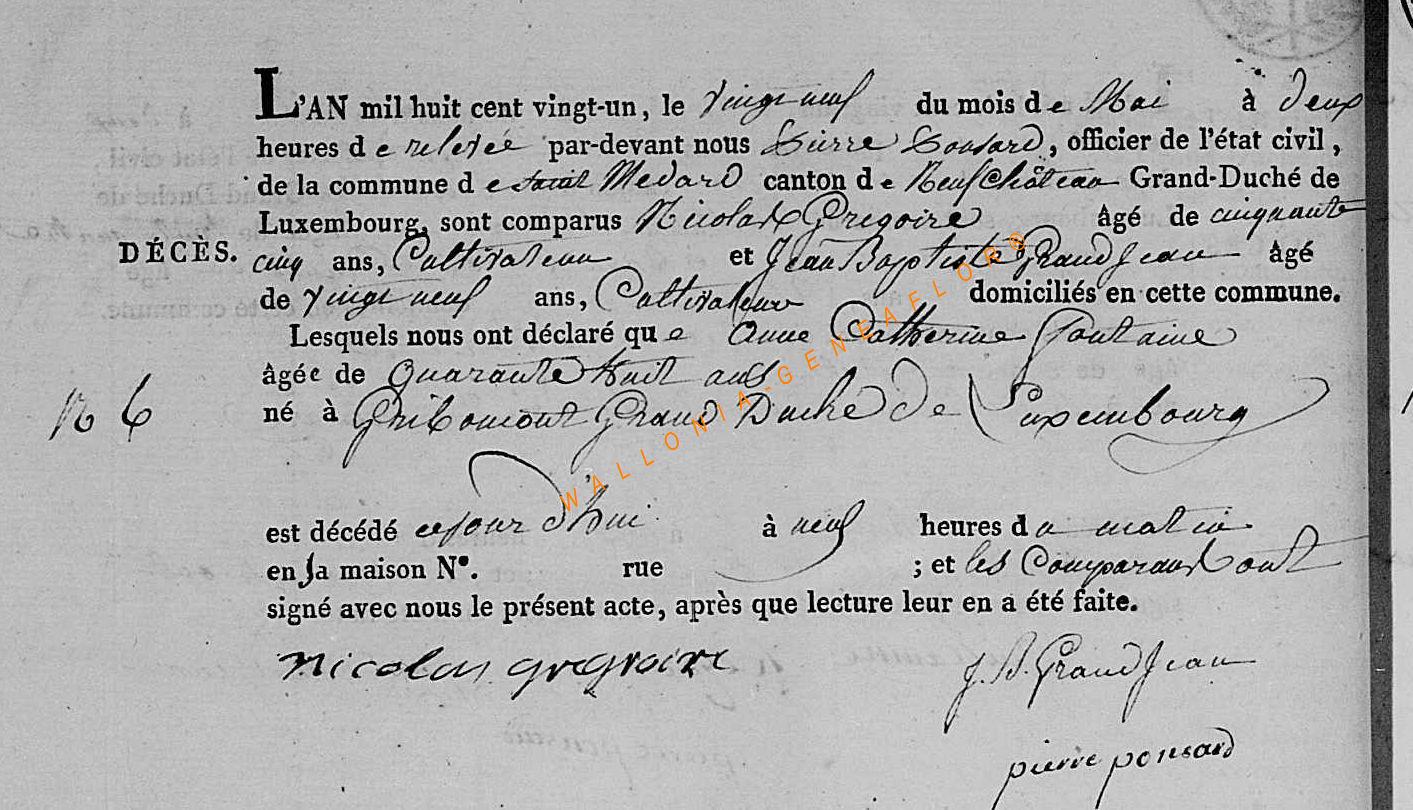 L'AN mil huit cent vingt-un, le vingt neuf du mois de Mai à deux
heures de relevée par-devant nous Pierre Ponsard, officier de l'état civil,
de la commune de saint Medard canton de Neufchâteau Grand-Duché de
Luxembourg, sont comparus Nicolas Gregoire âgé de cinquante
DÉCÈS. cinq ans, Cultivateur et Jean Baptiste Grand Jean âgé
de vingt neuf ans, Cultivateur domiciliés en cette commune.
Lesquels nous ont déclaré que Anne Catherine Fontaine
âgée de Quarante huit ans
N 6 né à Gribomont Grand Duché de Luxembourg
WALLONIA-GENEAFLORE
est décédé cejourd'hui à neuf heures du matin
en sa maison N°. rue ; et les Comparans ont
signé avec nous le présent acte, après que lecture leur en a été faite.
nicolas gregroire J. B. Grand Jean
pierre ponsard